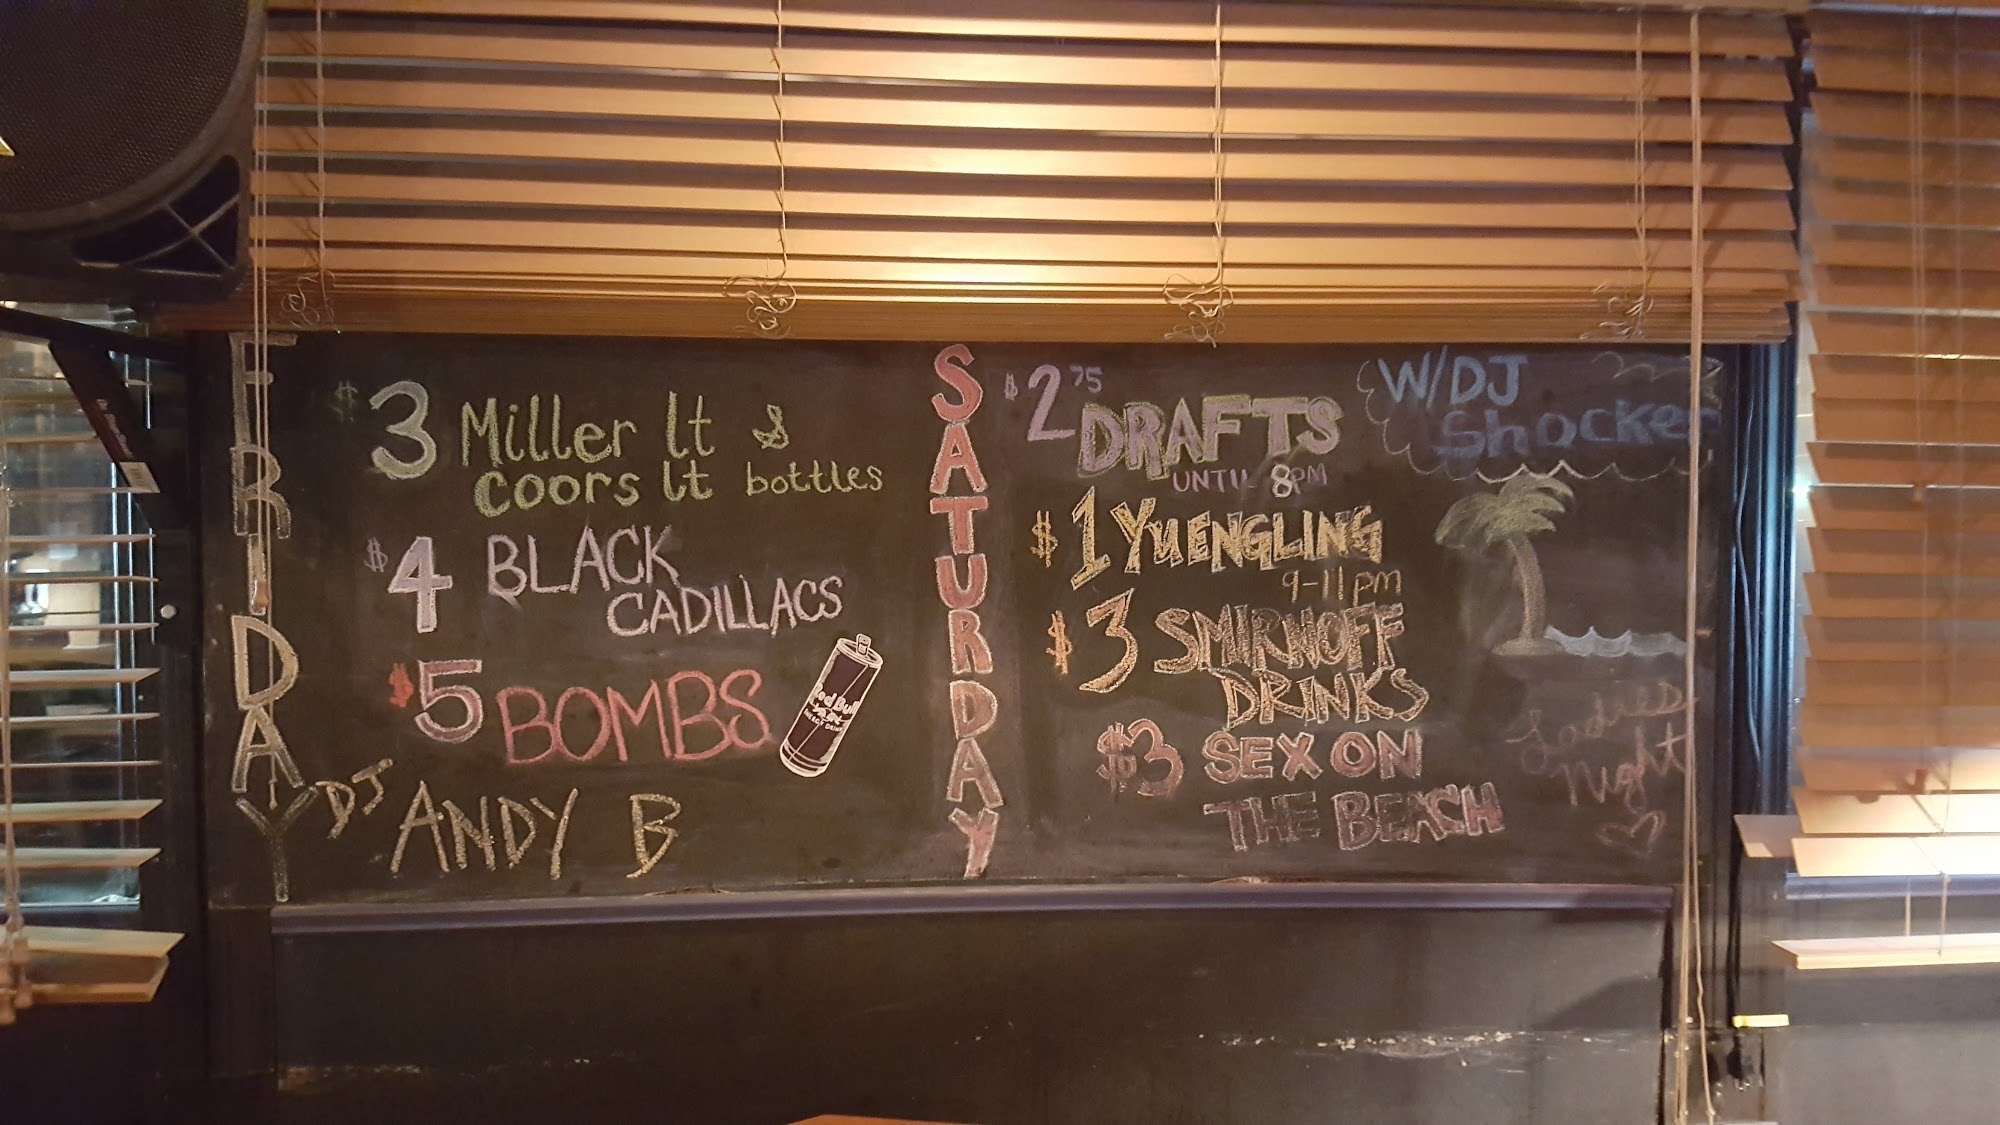 FRIDAY
$3 Miller lt &
coors lt bottles
$4 BLACK
CADILLACS
$5 BOMBS
Red Bull
ENERGY DRINK
DJ ANDY B
SATURDAY
$2 75 DRAFTS
UNTIL 8PM
$1 YUENGLING
9-11pm
$3 SMIRNOFF
DRINKS
$3 SEX ON
THE BEACH
W/DJ
Shocker
Ladies
Night